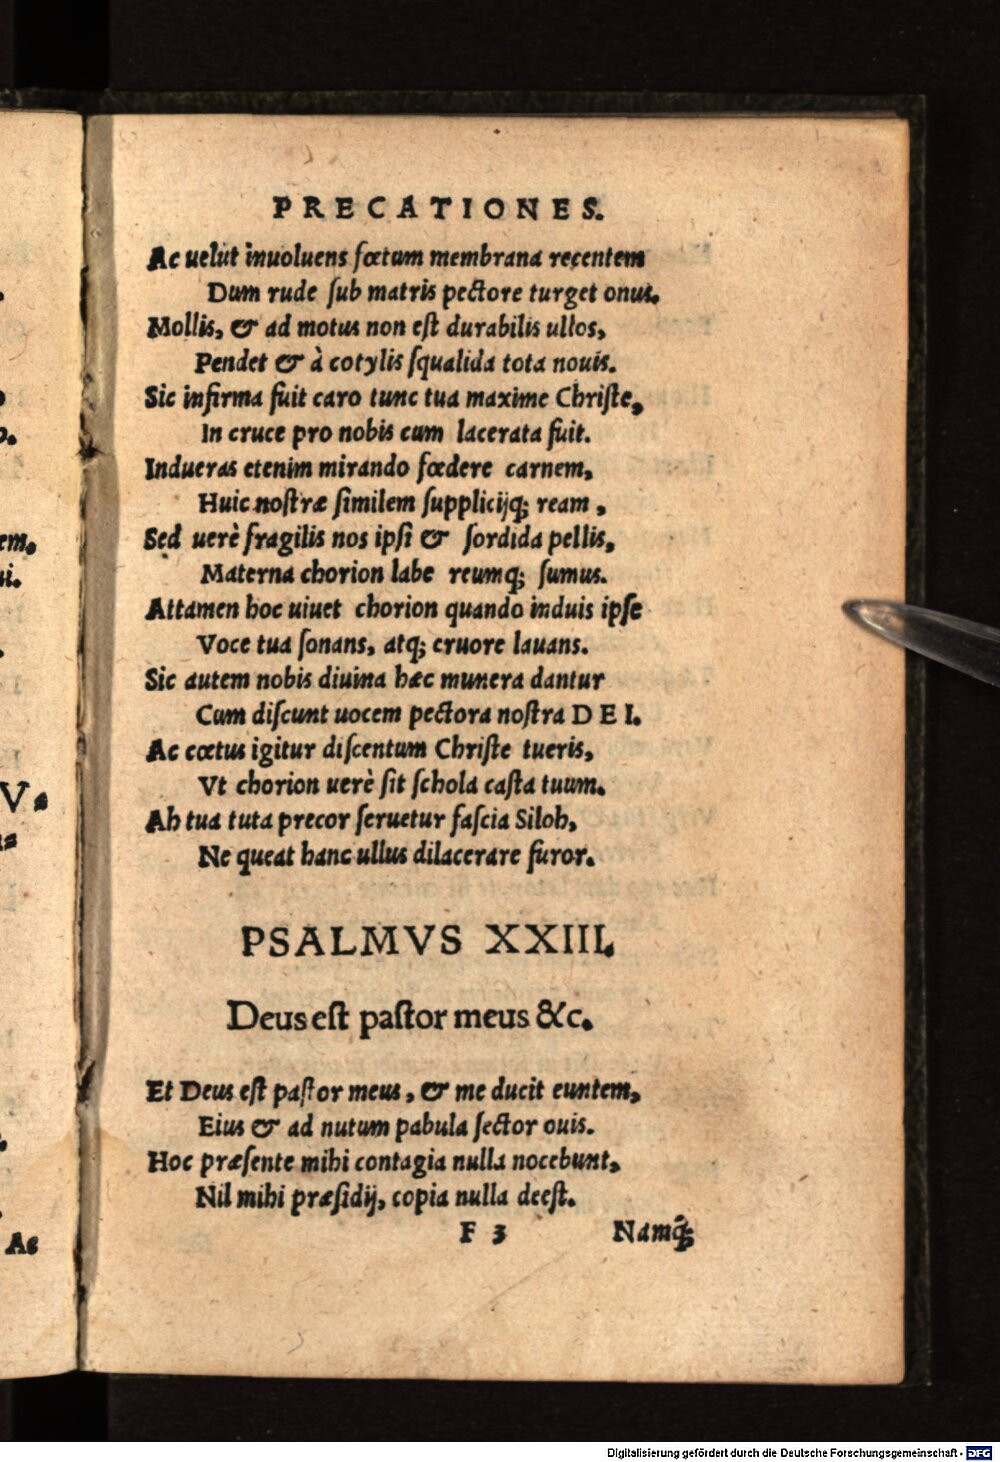 PRECATIONES.
Ac uelut inuoluens fœtum membrana recentem
Dum rude ſub matris pectore turget onus.
Mollis, & ad motus non eſt durabilis ullos,
Pendet & à cotylis ſqualida tota nouis.
Sic infirma fuit caro tunc tua maxime Chriſte,
In cruce pro nobis cum lacerata fuit.
Indueras etenim mirando fœdere carnem,
Huic noſtræ ſimilem ſupplicijq; ream,
Sed uerè fragilis nos ipſi & ſordida pellis,
Materna chorion labe reumq; ſumus.
Attamen hoc uiuet chorion quando induis ipſe
Voce tua ſonans, atq; cruore lauans.
Sic autem nobis diuina hæc munera dantur
Cum diſcunt uocem pectora noſtra DEI.
Ac cœtus igitur diſcentum Chriſte tueris,
Vt chorion uerè ſit ſchola caſta tuum.
Ab tua tuta precor ſeruetur faſcia Siloh,
Ne queat hanc ullus dilacerare furor.
PSALMVS XXIII.
Deus est paſtor meus &c.
Et Deus eſt paſtor meus, & me ducit euntem,
Eius & ad nutum pabula ſector ouis.
Hoc præſente mihi contagia nulla nocebunt,
Nil mihi præſidij, copia nulla deeſt.
F 3 Namq́;
em.
ni.
V-
Ac
Digitalisierung gefördert durch die Deutsche Forschungsgemeinschaft - DFG